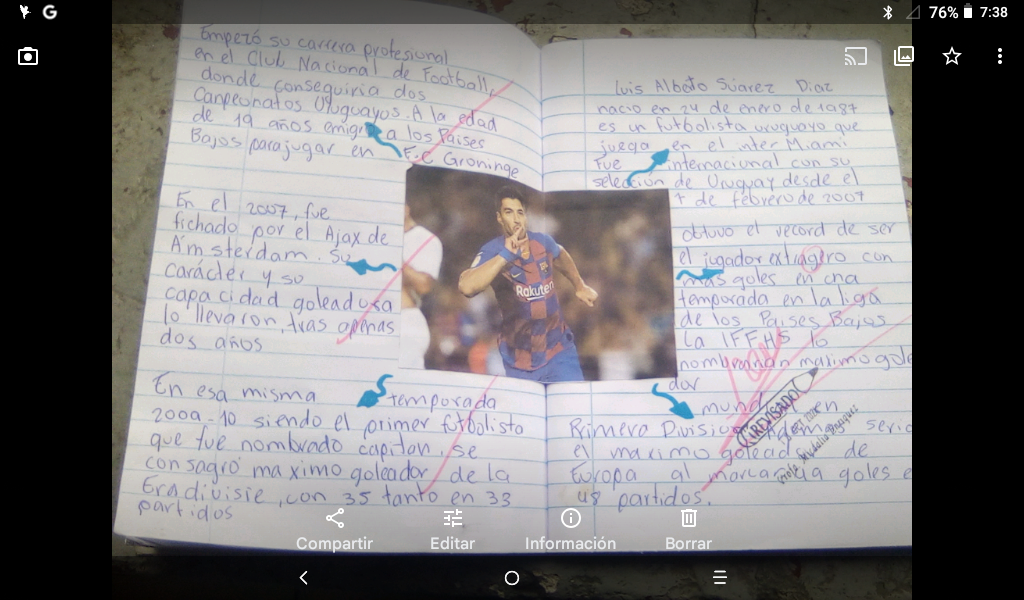 76% 7:38
Emperó su carrera profesional
en el Club Nacional de Football,
donde conseguiria dos
Canpeonatos Uruguayos. A la edad
de 19 años emigr a los Paises
Bajos parajugar en F.C Groninge
En el 2007, fue
fichado por el Ajax de
Amsterdam. Su
carácter y su
capacidad goleadora
lo llevaron, tras apenas
dos años
En esa misma temporada
2009-10 siendo el primer futbolista
que fue nombrado capitan, se
consagró maximo goleador de la
Eradivisie, con 35 tanto en 33
partidos
Luis Alberto Súarez Diaz
nacio en 24 de enero de 1987
es un futbolista uruguayo que
juega en el inter Miami
Fue internacional con su
selección de Uruguay desde el
7 de febrero de 2007
obtuvo el record de ser
el jugador extragero con
mas goles en una
temporada en la liga
de los Paises Bajos
La IFFHS lo
nombrarian maximo gole
dor
mund en
Primera Division Ademas seria
el maximo golead de
Europa al marcar goles e
48 partidos.
Rakuten
REVISADO
Compartir Editar Información Borrar